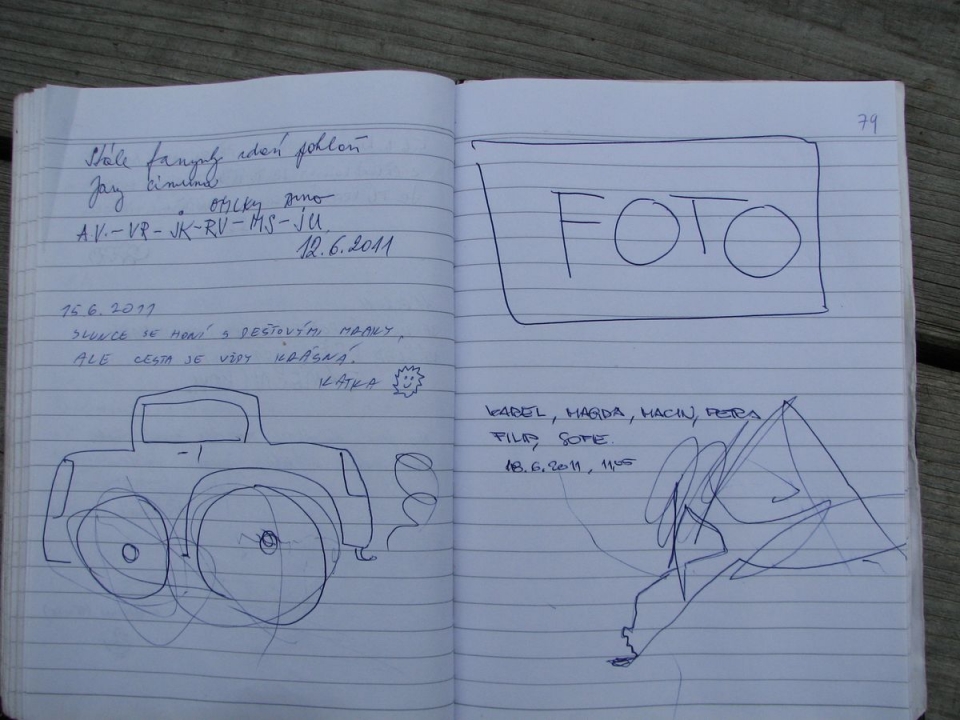 Stále
Jary
A.V.-VR-JK-RV-MS-JU
12.6.2011
15.6.2011
SLUNCE SE HONÍ S DEŠŤOVÝMI MRAKY,
ALE CESTA JE VŽDY KRÁSNÁ.
KATKA
79
FOTO
KAREL, MAGDA, MACIN, PETRA
FILIP, SOFIE.
18.6.2011, 1105